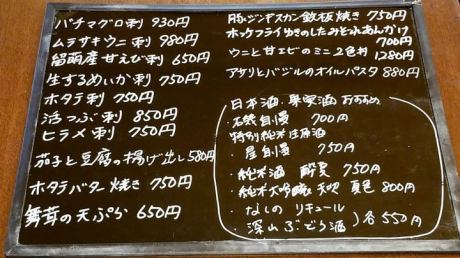 バチマグロ刺 930円
ムラサキウニ刺 980円
留萌産甘えび刺 650円
生するめいか刺 750円
ホタテ刺 750円
活つぶ刺 850円
ヒラメ刺 750円
茄子と豆腐の揚げ出し 580円
ホタテバター焼き 750円
舞茸の天ぷら 650円
豚ジンギスカン鉄板焼き 750円
ホッケフライゆきのしたみぞれあんかけ
700円
ウニと甘エビのミニ2色丼 1280円
アサリとバジルのオイルパスタ 880円
日本酒・果実酒 おすすめ
・石鎚自慢 700円
特別純米生原酒
・屋自慢 750円
・純米酒 酔実 750円
・純米大吟醸 夏色 800円
・なしの リキュール
・深山ぶどう酒 ) 各550円